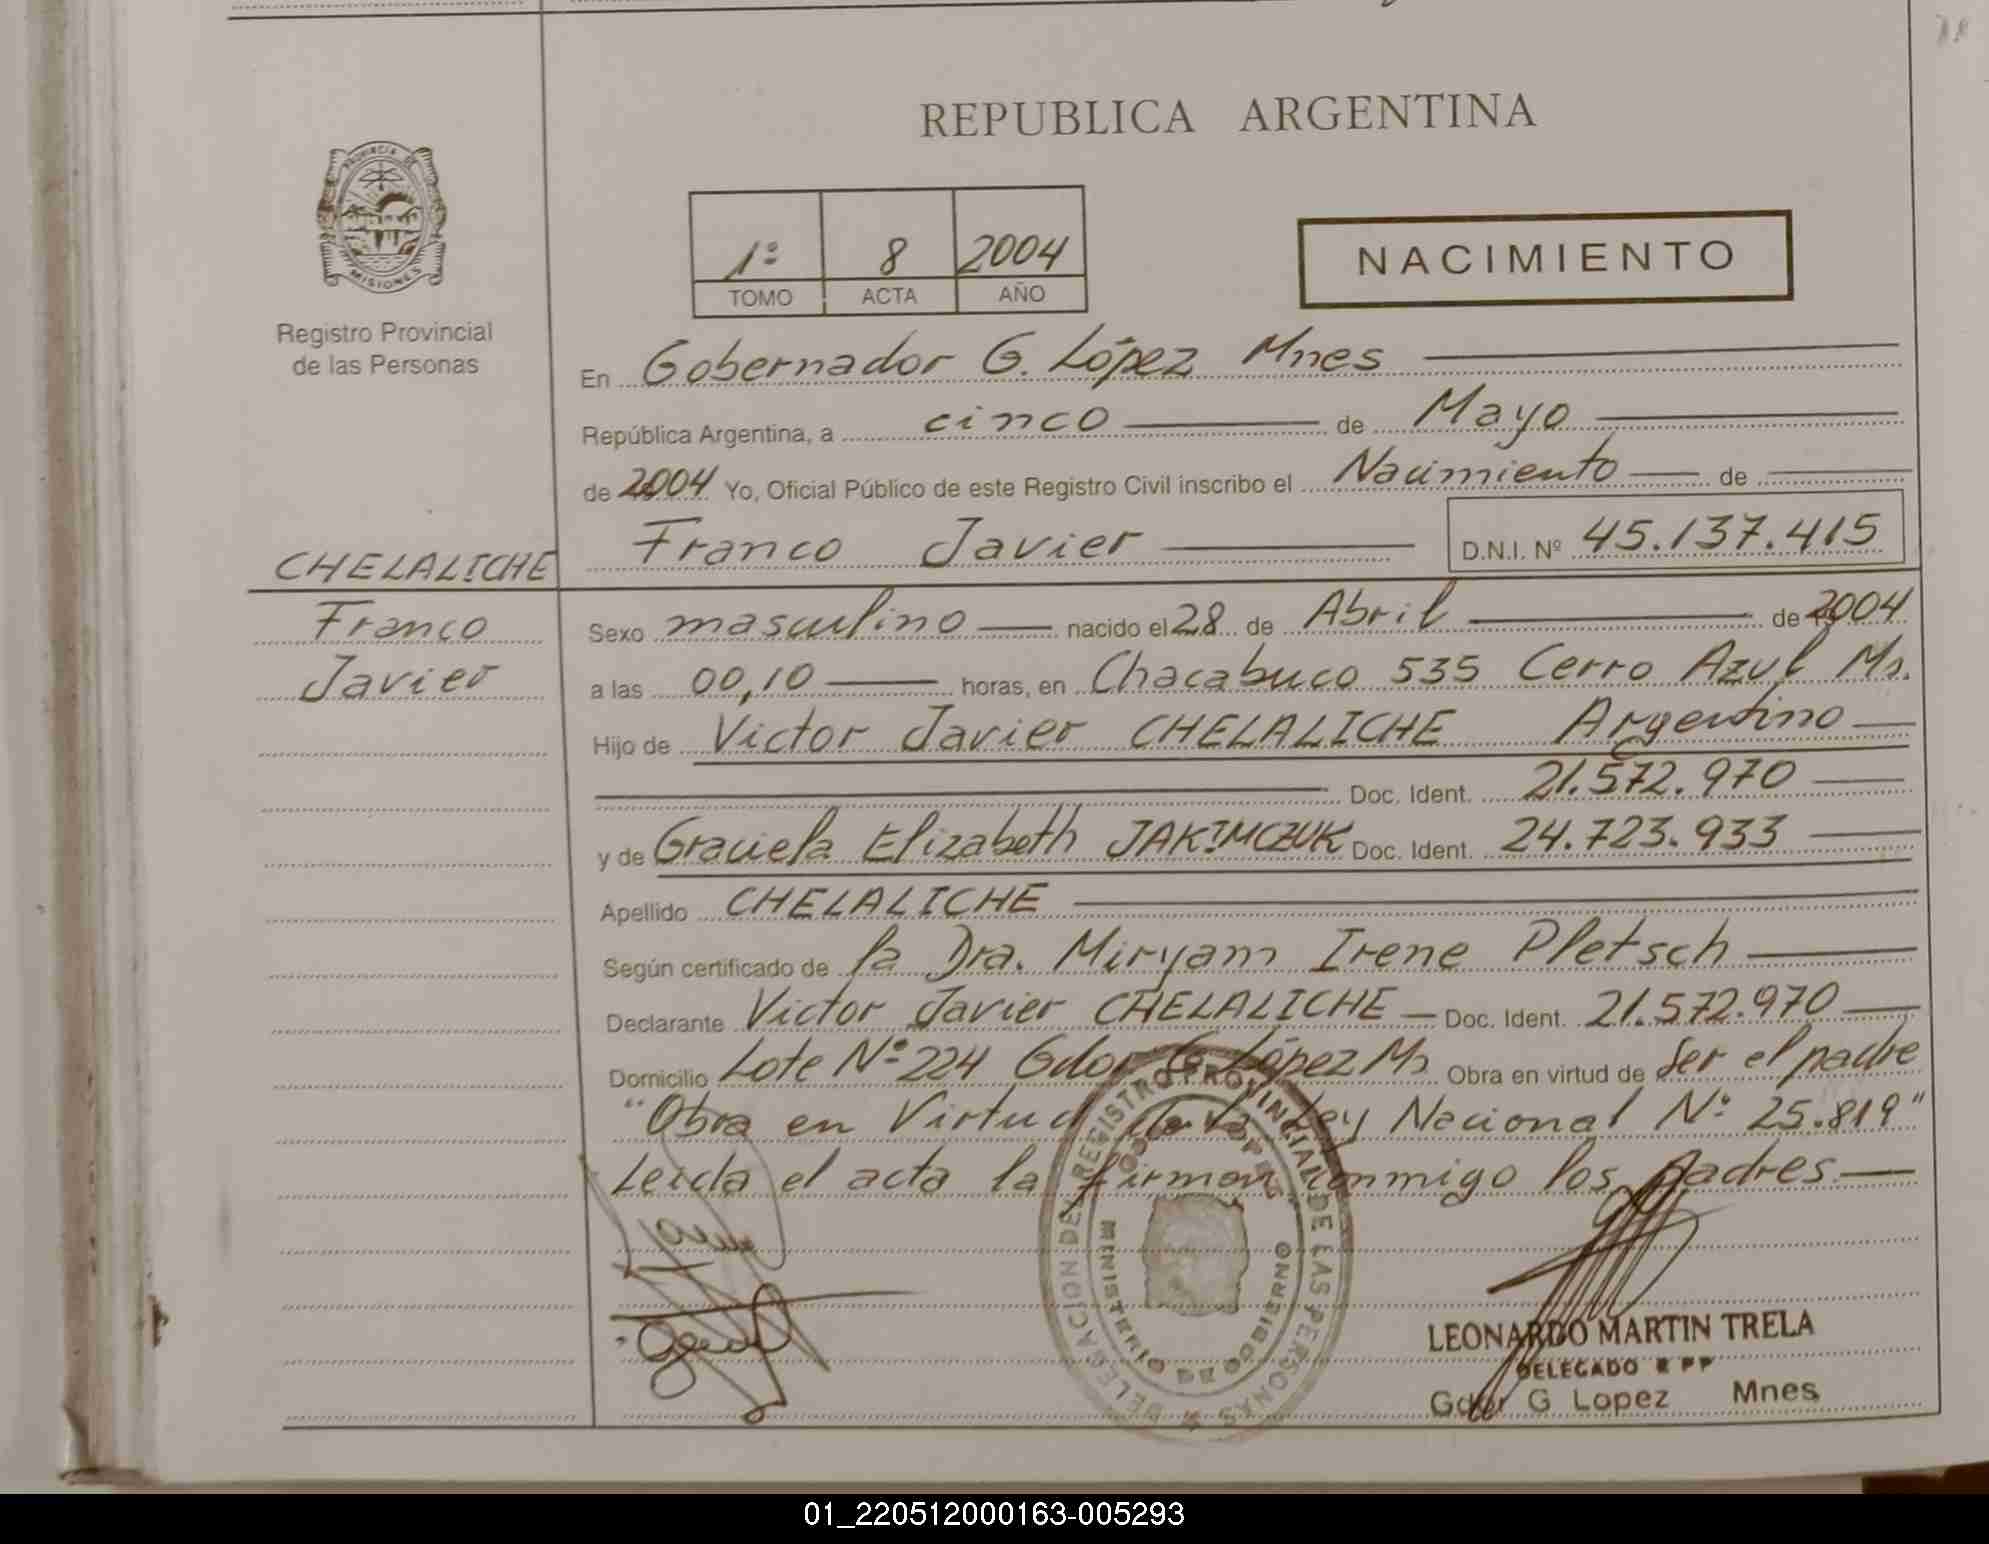 REPUBLICA ARGENTINA
PROVINCIA DE
MISIONES
Registro Provincial
de las Personas
1º 8 2004
TOMO ACTA AÑO
NACIMIENTO
En Gobernador G. López Mnes
República Argentina, a cinco de Mayo
de 2004 Yo, Oficial Público de este Registro Civil inscribo el Nacimiento de
Franco Javier D.N.I. Nº 45.137.415
CHELALICHE
Franco
Javier
Sexo masculino nacido el 28 de Abril de 2004
a las 00,10 horas, en Chacabuco 535 Cerro Azul Ms.
Hijo de Victor Javier CHELALICHE Argentino
Doc. Ident. 21.572.970
y de Graciela Elizabeth JAKIMCZUK Doc. Ident. 24.723.933
Apellido CHELALICHE
Según certificado de la Dra. Miryam Irene Pletsch
Declarante Victor Javier CHELALICHE Doc. Ident. 21.572.970
Domicilio Lote Nº 224 Gdor G. López Ms Obra en virtud de Ser el padre
"Obra en Virtud de la Ley Nacional Nº 25.819"
Leida el acta la firman conmigo los padres.
DELEGACION DEL REGISTRO PROVINCIAL DE LAS PERSONAS
MINISTERIO DE GOBIERNO
LEONARDO MARTIN TRELA
DELEGADO R P P
Gdor G Lopez Mnes
01_220512000163-005293